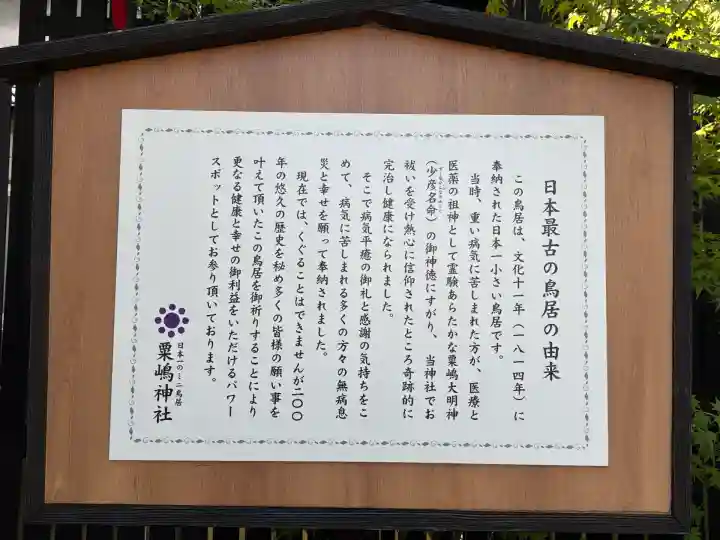 日本最古の鳥居の由来
この鳥居は、文化十一年(一八一四年)に
奉納された日本一小さい鳥居です。
当時、重い病気に苦しまれた方が、医療と
医薬の祖神として霊験あらたかな粟嶋大明神
(少彦名命)の御神徳にすがり、当神社でお
祓いを受け熱心に信仰されたところ奇跡的に
完治し健康になられました。
そこで病気平癒の御礼と感謝の気持ちをこ
めて、病気に苦しまれる多くの方々の無病息
災と幸せを願って奉納されました。
現在では、くぐることはできませんが二〇〇
年の悠久の歴史を秘め多くの皆様の願い事を
叶えて頂いたこの鳥居を御祈りすることにより
更なる健康と幸せの御利益をいただけるパワー
スポットとしてお参り頂いております。
日本一のミニ鳥居
粟嶋神社